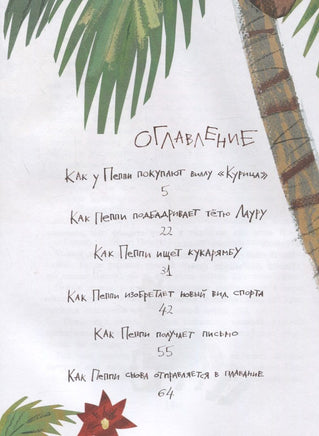 ОГЛАВЛЕНИЕ
Как у Пеппи покупают виллу «Курица»
5
Как Пеппи подбадривает тётю Лауру
22
Как Пеппи ищет кукарямбу
31
Как Пеппи изобретает новый вид спорта
42
Как Пеппи получает письмо
55
Как Пеппи снова отправляется в плавание
64